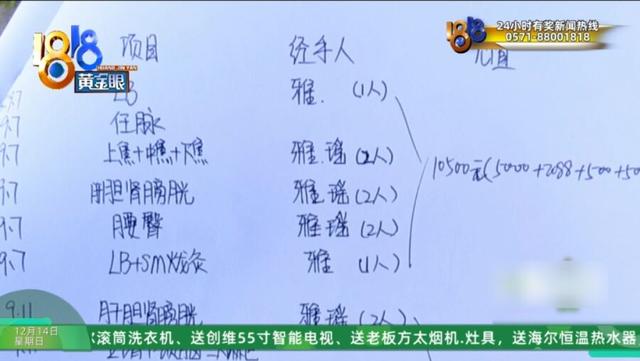 1818
黄金眼
24小时有奖新闻热线
0571-88001818
项目 经手人
雅. (1人)
9.7 任脉
9.7 上焦+中焦+下焦 雅.瑶(2人)
10500元(5000+2088+500+50
9.7 肝胆肾膀胱 雅瑶(2人)
9.7 腰臀 雅瑶(2人)
9.7 LB+SM火灸 雅 (1人)
9.11 肝胆肾膀胱 雅瑶(2人)
12月14日
星期日
滚筒洗衣机、送创维55寸智能电视、送老板方太烟机.灶具，送海尔恒温热水器